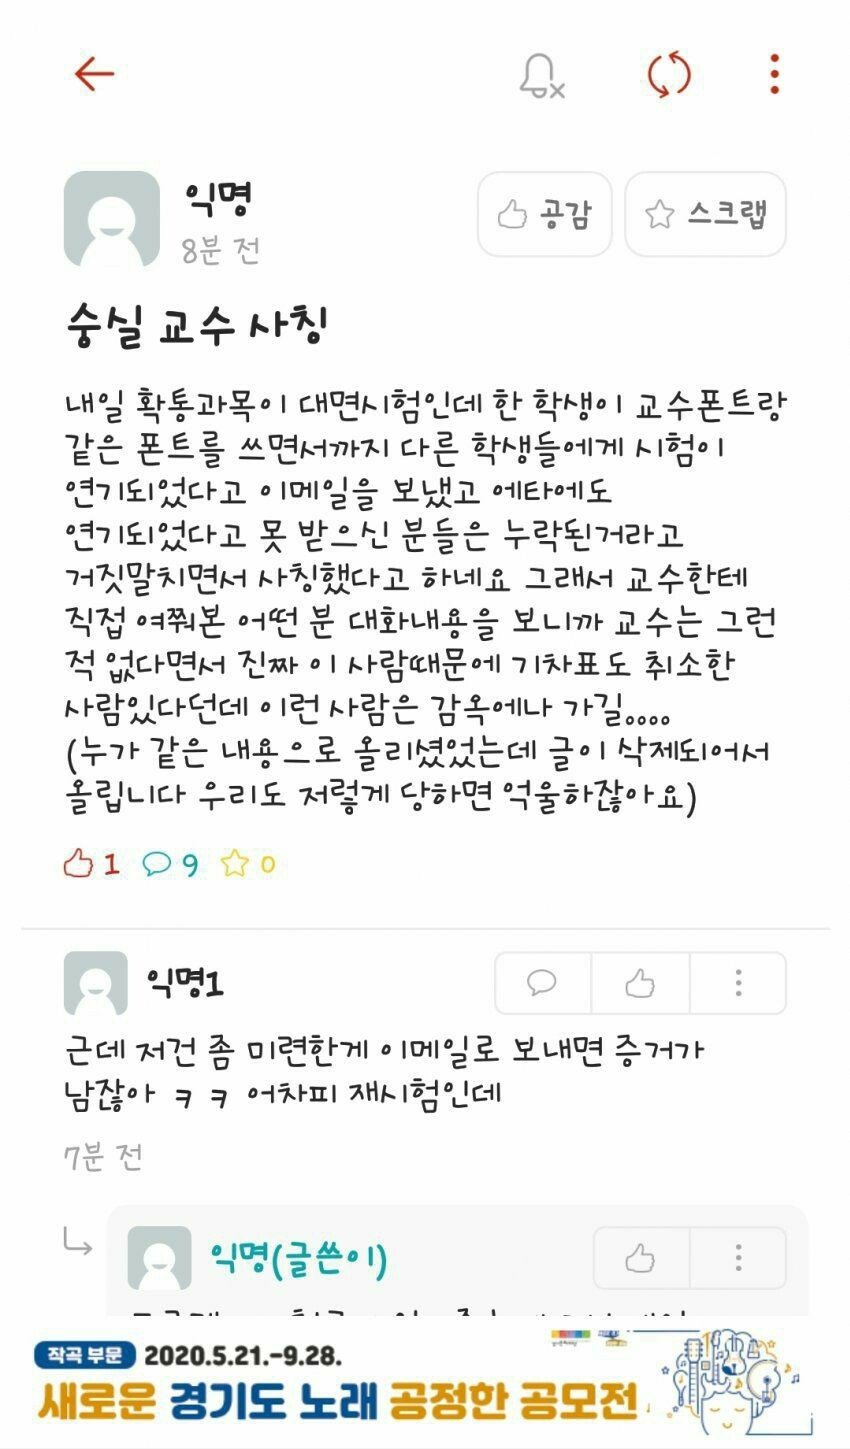 익명
8분 전
공감
스크랩
숭실 교수 사칭
내일 확통과목이 대면시험인데 한 학생이 교수폰트랑
같은 폰트를 쓰면서까지 다른 학생들에게 시험이
연기되었다고 이메일을 보냈고 에타에도
연기되었다고 못 받으신 분들은 누락된거라고
거짓말치면서 사칭했다고 하네요 그래서 교수한테
직접 여쭤본 어떤 분 대화내용을 보니까 교수는 그런
적 없다면서 진짜 이 사람때문에 기차표도 취소한
사람있다던데 이런 사람은 감옥에나 가길....
(누가 같은 내용으로 올리셨었는데 글이 삭제되어서
올립니다 우리도 저렇게 당하면 억울하잖아요)
1 9 0
익명1
근데 저건 좀 미련한게 이메일로 보내면 증거가
남잖아 ㅋㅋ 어차피 재시험인데
7분 전
익명(글쓴이)
작곡 부문 2020.5.21.-9.28.
새로운 경기도 노래 공정한 공모전